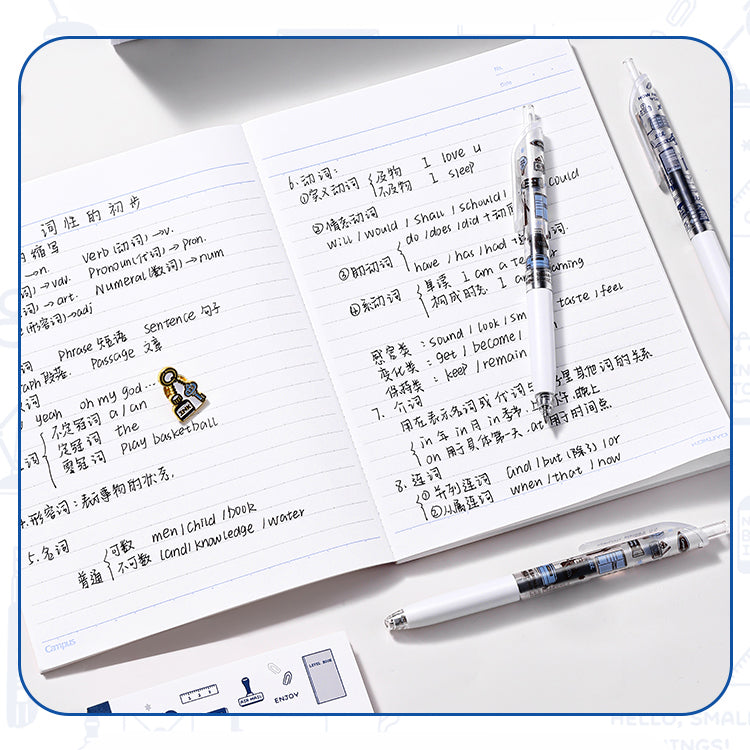 词性的初步
缩写
→n. verb(动词)→v.
词)→adv. Pronoun(代词)→pron.
词)→art. Numeral(数词)→num
(形容词)→adj
词 Phrase 短语 Sentence 句子
graph 段落. Passage 文章
yeah oh my god...
不定冠词 a/an
冠词 定冠词 the
零冠词 play basketball
4.形容词:表示事物的状态.
5.名词
普通 可数 men/child/book
不可数 land/knowledge/water
Campus
6.动词:
①实义动词 及物 I love u
不及物 I sleep
②情态动词
will/would/shall/schould/ could
③助动词 do/does/did+动
have/has/had+
④系动词 单误 I am a te er
构成时态 I a arning
感官类:sound/look/sm taste/feel
变化类:get/become/
保持类:keep/remain
7.介词
用在表示名词或代词与 其他词的关系
in 年 in 月 in 季 晚上
on 用于具体某一天.at 用于时间点
8.连词
①并列连词 and/but(除了)/or
②从属连词 when/that/how
No.
Date
KOKUYO
INK
1 2 3
AIR MAIL
ENJOY
LEVEL BOOK
HELLO, SMALL
THINGS!